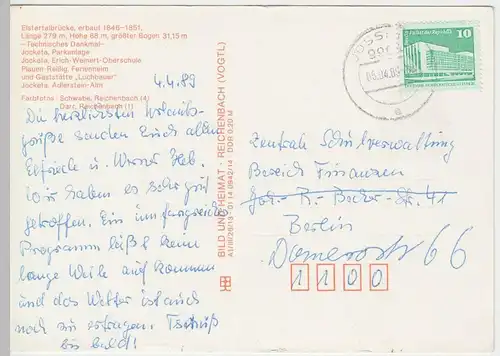 Elstertalbrücke, erbaut 1846–1851,
Länge 279 m, Höhe 68 m, größter Bogen 31,15 m
—Technisches Denkmal—
Jocketa, Parkanlage
Jocketa, Erich-Weinert-Oberschule
Plauen-Reißig, Ferienheim
und Gaststätte „Lochbauer"
Jocketa, Adlerstein-Alm
Farbfotos: Schwabe, Reichenbach (4)
Darr, Reichenbach (1)
4.4.89
Die herzlichsten Urlaubs-
grüße senden Euch allen
Elfriede u. Werner Heb.
Wir haben es sehr gut
getroffen. Ein umfangreich
Programm läßt keine
lange Weile aufkommen
und das Wetter ist auch
noch zu ertragen. Tschüß
bis bald!
BILD UND HEIMAT · REICHENBACH (VOGTL)
DDR 0,20 M
10
DDR
05.04.89
a
Zentrale Schulverwaltung
Bereich Finanzen
Joh.-R.-Becher-Str. 41
Berlin
66
1100